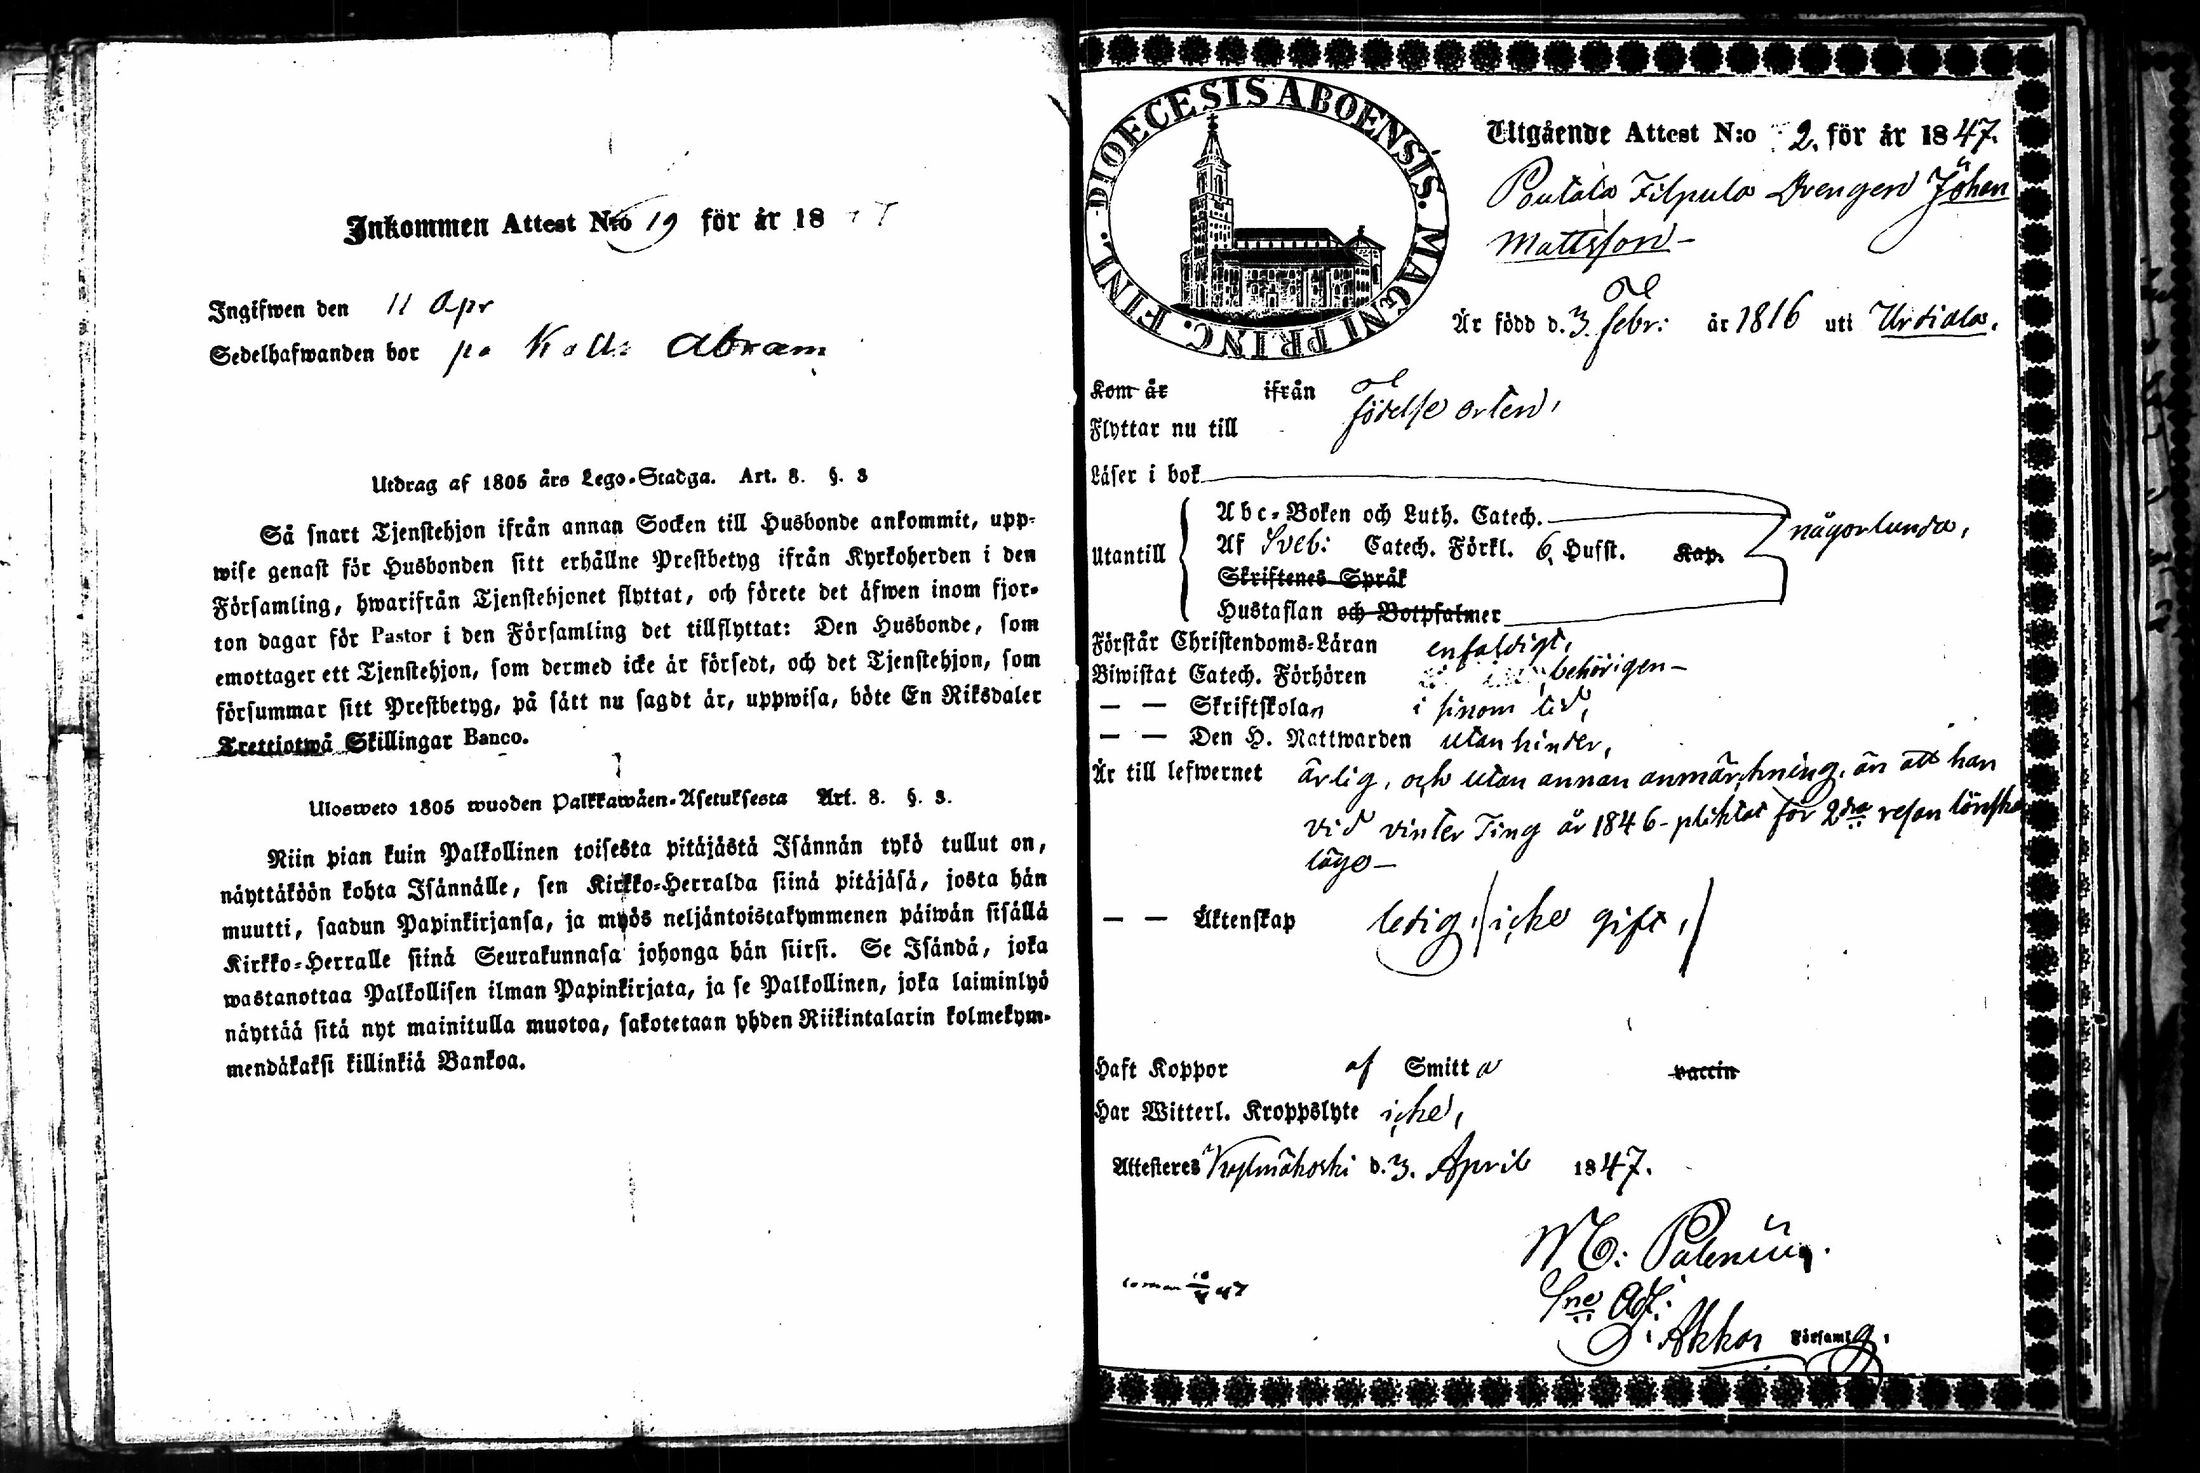 Inkommen Attest N:o 19 för år 18 47
Ingifwen den 11 Apr
Sedelhafwanden bor på Abram
Utdrag af 1805 års Lego-Stadga. Art. 8. §. 3
Så snart Tjenstehjon ifrån annan Socken till Husbonde ankommit, upp-
wise genast för Husbonden sitt erhållne Prestbetyg ifrån Kyrkoherden i den
Församling, hwarifrån Tjenstehjonet flyttat, och förete det äfwen inom fjor-
ton dagar för Pastor i den Församling det tillflyttat: Den Husbonde, som
emottager ett Tjenstehjon, som dermed icke är försedt, och det Tjenstehjon, som
försummar sitt Prestbetyg, på sätt nu sagdt är, uppwisa, böte En Riksdaler
Trettiotwå Skillingar Banco.
Ulosweto 1805 wuoden Palkkawäen-Asetuksesta Art. 8. §. 3.
Niin pian kuin Palkollinen toisesta pitäjästä Isännän tykö tullut on,
näyttäköön kohta Isännälle, sen Kirkko-Herralda siinä pitäjäsä, josta hän
muutti, saadun Papinkirjansa, ja myös neljäntoistakymmenen päiwän sisällä
Kirkko-Herralle siinä Seurakunnasa johonga hän siirsi. Se Isändä, joka
wastanottaa Palkollisen ilman Papinkirjata, ja se Palkollinen, joka laiminlyö
näyttää sitä nyt mainitulla muotoa, sakotetaan yhden Riikintalarin kolmekym-
mendäkaksi killinkiä Bankoa.
DIOECESIS ABOENSIS. MAGNI PRINC. FINL.
Utgående Attest N:o 2. för år 1847.
Poutala Filpula Drengen Johan
Mattsson
Är född d. 3 Febr: år 1816 uti Urdiala.
Kom år ifrån
Flyttar nu till födelse orten.
Läser i bok
Abc-Boken och Luth. Catech.
Utantill Af Sveb: Catech. Förkl. 6 Hufst. Kap. någorlunda,
Skriftenes Språk
Hustaflan och Botpsalmer
Förstår Christendoms-Läran enfaldigt,
Biwistat Catech. Förhören behörigen
— — Skriftskolan i sinom tid,
— — Den H. Nattwarden utan hinder,
Är till lefwernet ärlig, och utan annan anmärkning, än att han
vid vinter Ting år 1846 pliktat för 2dra resan lönska
läge
— — Äktenskap ledig, /icke gift,/
Haft Koppor af Smitta vaccin
Har Witterl. Kroppslyte icke,
Attesteres Kylmäkoski d. 3. April 1847.
M: Palenius.
Sne Adj:
i Akkas Församlg.